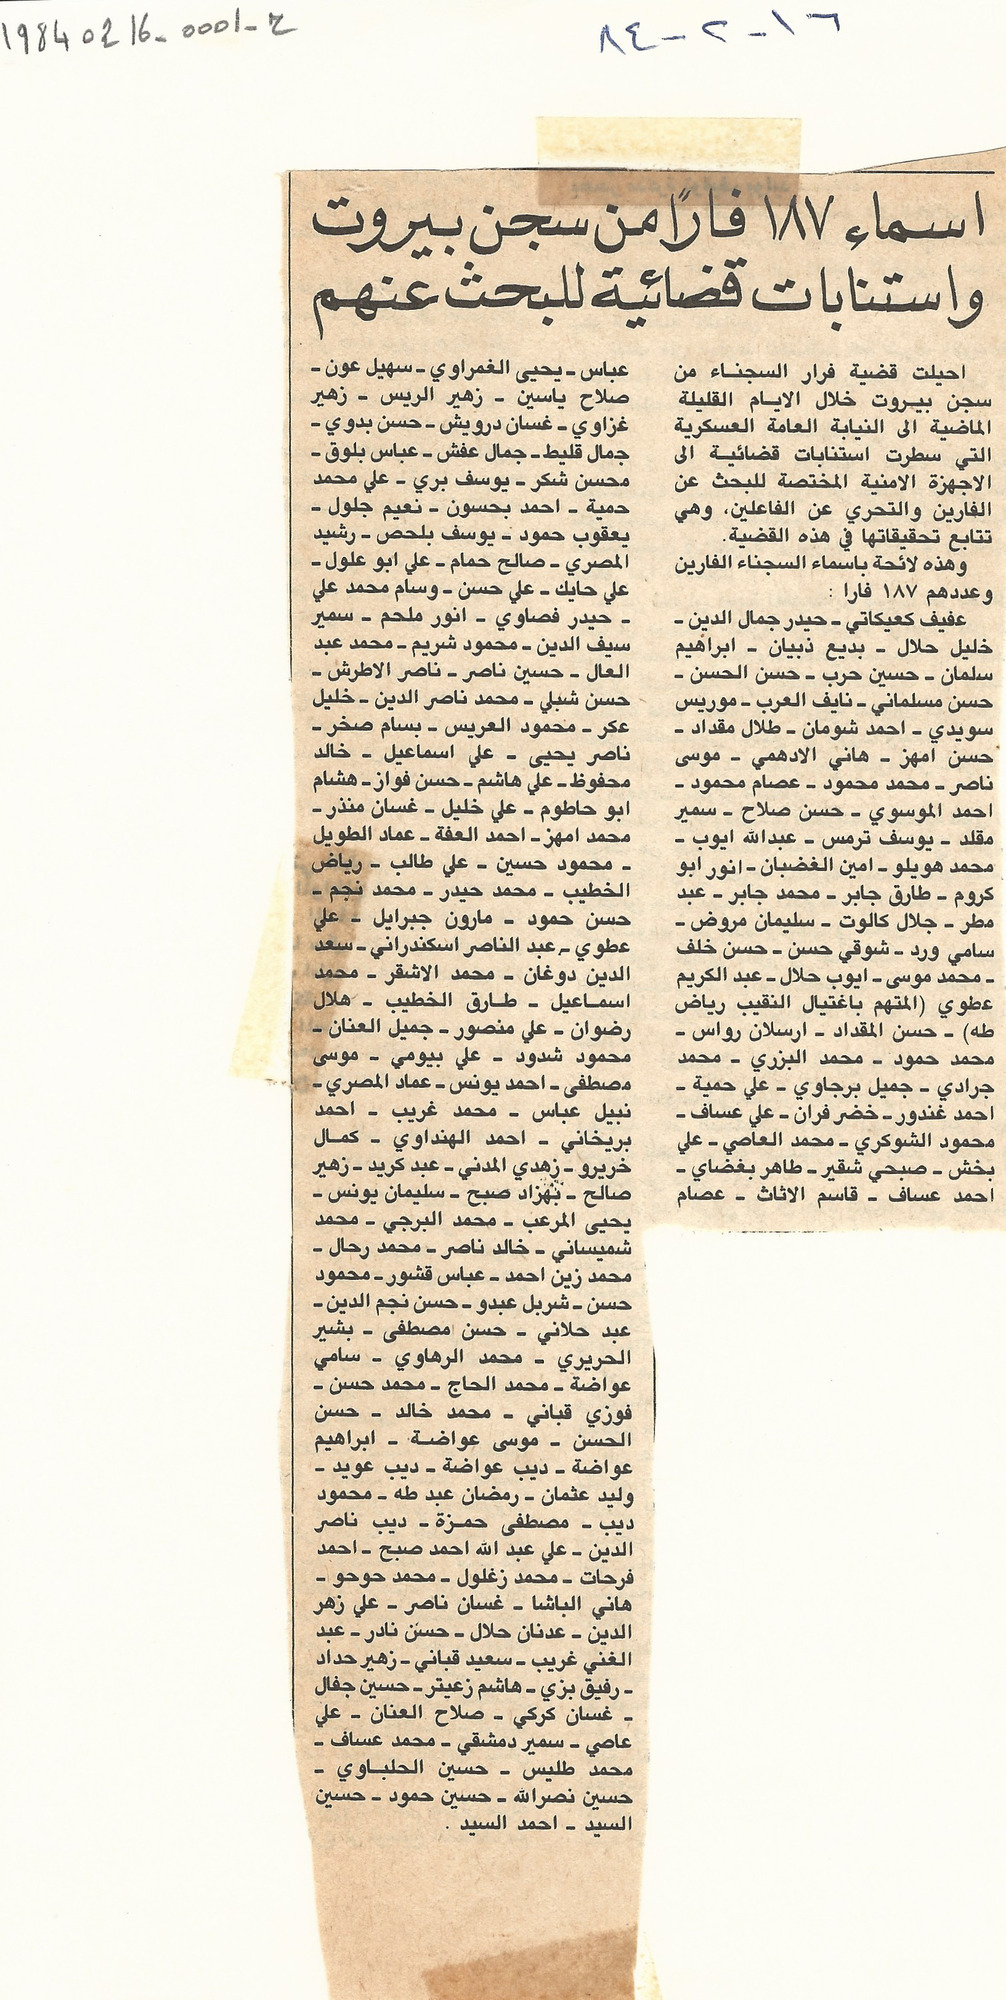 19840216-0001-ح
١٦-٢-٨٤
اسماء ١٨٧ فارًا من سجن بيروت
واستنابات قضائية للبحث عنهم
احيلت قضية فرار السجناء من
سجن بيروت خلال الايام القليلة
الماضية الى النيابة العامة العسكرية
التي سطرت استنابات قضائية الى
الاجهزة الامنية المختصة للبحث عن
الفارين والتحري عن الفاعلين، وهي
تتابع تحقيقاتها في هذه القضية.
وهذه لائحة باسماء السجناء الفارين
وعددهم ١٨٧ فارا :
عفيف كعيكاتي ـ حيدر جمال الدين ـ
خليل حلال ـ بديع ذبيان ـ ابراهيم
سلمان ـ حسين حرب ـ حسن الحسن ـ
حسن مسلماني ـ نايف العرب ـ موريس
سويدي ـ احمد شومان ـ طلال مقداد ـ
حسن امهز ـ هاني الادهمي ـ موسى
ناصر ـ محمد محمود ـ عصام محمود ـ
احمد الموسوي ـ حسن صلاح ـ سمير
مقلد ـ يوسف ترمس ـ عبدالله ايوب ـ
محمد هويلو ـ امين الغضبان ـ انور ابو
كروم ـ طارق جابر ـ محمد جابر ـ عبد
مطر ـ جلال كالوت ـ سليمان مروض ـ
سامي ورد ـ شوقي حسن ـ حسن خلف
ـ محمد موسى ـ ايوب حلال ـ عبد الكريم
عطوي (المتهم باغتيال النقيب رياض
طه) ـ حسن المقداد ـ ارسلان رواس ـ
محمد حمود ـ محمد البزري ـ محمد
جرادي ـ جميل برجاوي ـ علي حمية ـ
احمد غندور ـ خضر فران ـ علي عساف ـ
محمود الشوكري ـ محمد العاصي ـ علي
بخش ـ صبحي شقير ـ طاهر بغضاي ـ
احمد عساف ـ قاسم الاثاث ـ عصام
عباس ـ يحيى الغمراوي ـ سهيل عون ـ
صلاح ياسين ـ زهير الريس ـ زهير
غزاوي ـ غسان درويش ـ حسن بدوي ـ
جمال قليط ـ جمال عفش ـ عباس بلوق ـ
محسن شكر ـ يوسف بري ـ علي محمد
حمية ـ احمد بحسون ـ نعيم جلول ـ
يعقوب حمود ـ يوسف بلحص ـ رشيد
المصري ـ صالح حمام ـ علي ابو علول ـ
علي حايك ـ علي حسن ـ وسام محمد علي
ـ حيدر فصاوي ـ انور ملحم ـ سمير
سيف الدين ـ محمود شريم ـ محمد عبد
العال ـ حسين ناصر ـ ناصر الاطرش ـ
حسن شبلي ـ محمد ناصر الدين ـ خليل
عكر ـ محمود العريس ـ بسام صخر ـ
ناصر يحيى ـ علي اسماعيل ـ خالد
محفوظ ـ علي هاشم ـ حسن فواز ـ هشام
ابو حاطوم ـ علي خليل ـ غسان منذر ـ
محمد امهز ـ احمد العفة ـ عماد الطويل
ـ محمود حسين ـ علي طالب ـ رياض
الخطيب ـ محمد حيدر ـ محمد نجم ـ
حسن حمود ـ مارون جبرايل ـ علي
عطوي ـ عبد الناصر اسكندراني ـ سعد
الدين دوغان ـ محمد الاشقر ـ محمد
اسماعيل ـ طارق الخطيب ـ هلال
رضوان ـ علي منصور ـ جميل العنان ـ
محمود شدود ـ علي بيومي ـ موسى
مصطفى ـ احمد يونس ـ عماد المصري ـ
نبيل عباس ـ محمد غريب ـ احمد
بريخاني ـ احمد الهنداوي ـ كمال
خريرو ـ زهدي المدني ـ عبد كريد ـ زهير
صالح ـ بهزاد صبح ـ سليمان يونس ـ
يحيى المرعب ـ محمد البرجي ـ محمد
شميساني ـ خالد ناصر ـ محمد رحال ـ
محمد زين احمد ـ عباس قشور ـ محمود
حسن ـ شربل عبدو ـ حسن نجم الدين ـ
عبد حلاني ـ حسن مصطفى ـ بشير
الحريري ـ محمد الرهاوي ـ سامي
عواضة ـ محمد الحاج ـ محمد حسن ـ
فوزي قباني ـ محمد خالد ـ حسن
الحسن ـ موسى عواضة ـ ابراهيم
عواضة ـ ديب عواضة ـ ديب عويد ـ
وليد عثمان ـ رمضان عبد طه ـ محمود
ديب ـ مصطفى حمزة ـ ديب ناصر
الدين ـ علي عبد الله احمد صبح ـ احمد
فرحات ـ محمد زغلول ـ محمد حوحو ـ
هاني الباشا ـ غسان ناصر ـ علي زهر
الدين ـ عدنان حلال ـ حسن نادر ـ عبد
الغني غريب ـ سعيد قباني ـ زهير حداد
ـ رفيق بزي ـ هاشم زعيتر ـ حسين جفال
ـ غسان كركي ـ صلاح العنان ـ علي
عاصي ـ سمير دمشقي ـ محمد عساف ـ
محمد طليس ـ حسين الحلباوي ـ
حسين نصرالله ـ حسين حمود ـ حسين
السيد ـ احمد السيد .